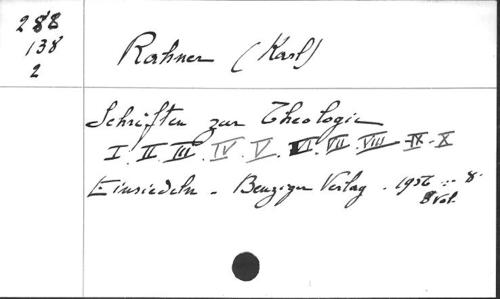 288
138
2
Rahner (Karl)
Schriften zur Theologie
I. II III. IV. V. VI. VII. VIII - IX - X
Einsiedeln - Benziger Verlag. 1956 8.
8 Vol.